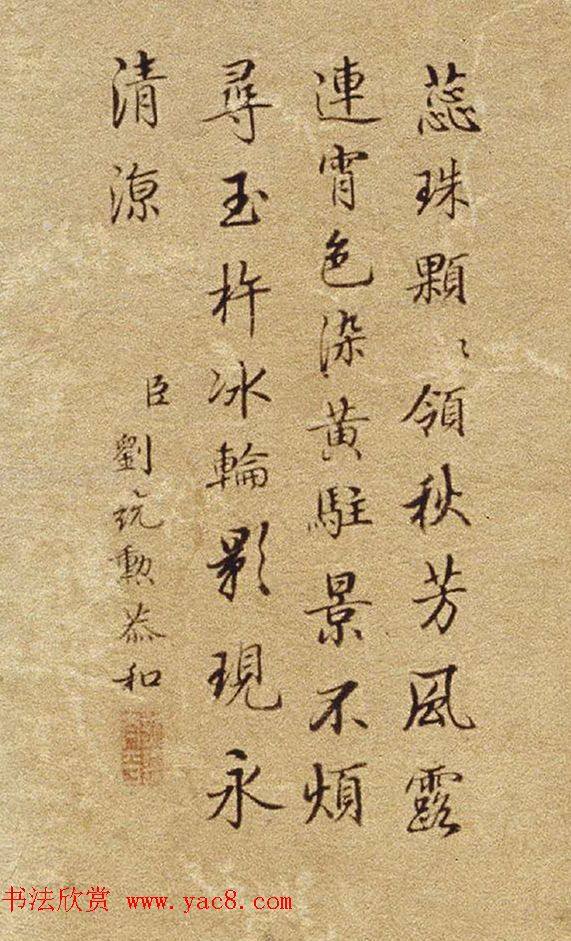 蕊珠顆〻領秋芳風露
連宵色染黄駐景不煩
尋玉杵冰輪影現永
清源
臣劉統勳恭和
书法欣赏 www.yac8.com